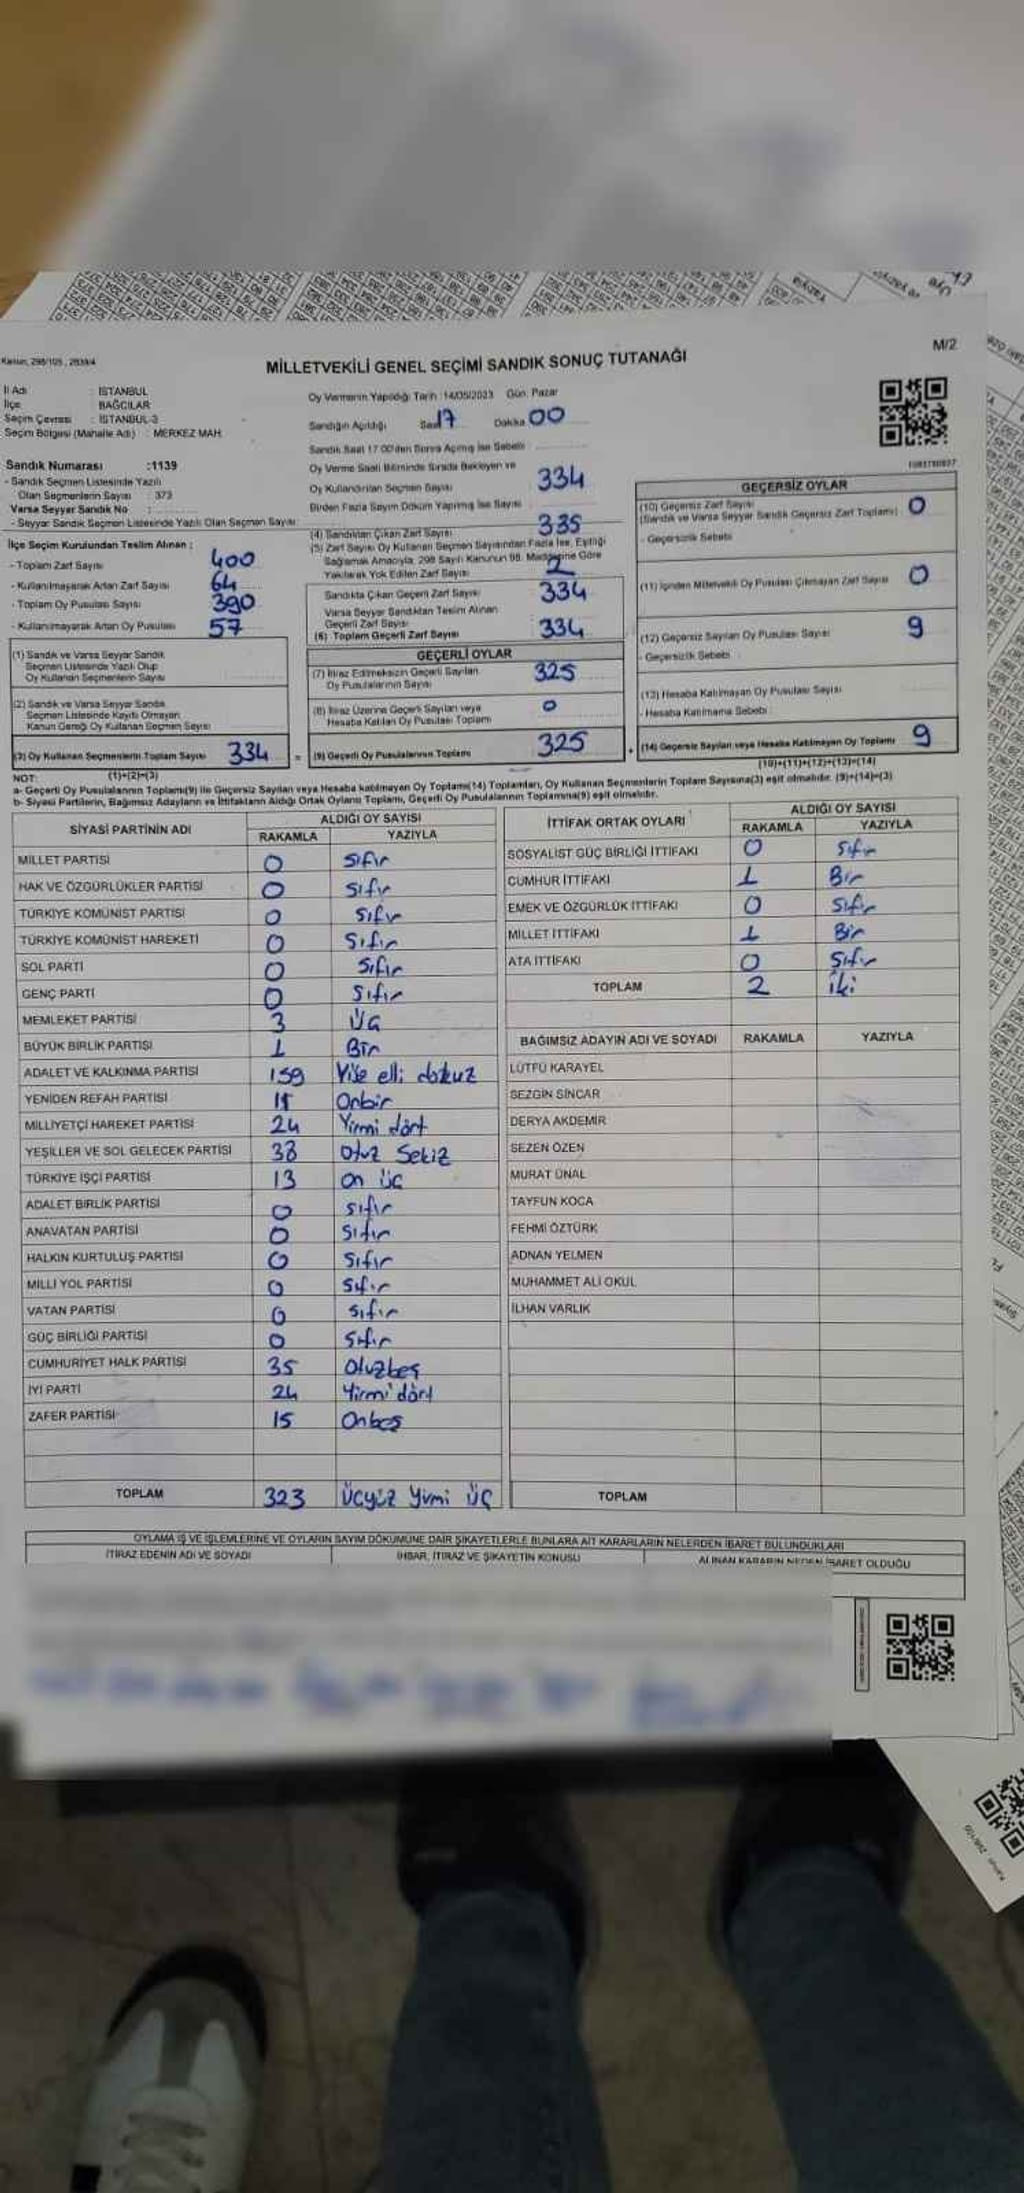 Kanun, 298/105 , 2839/4
M/2
MİLLETVEKİLİ GENEL SEÇİMİ SANDIK SONUÇ TUTANAĞI
İl Adı : İSTANBUL
İlçe : BAĞCILAR
Seçim Çevresi : İSTANBUL-3
Seçim Bölgesi (Mahalle Adı) : MERKEZ MAH.
Sandık Numarası :1139
- Sandık Seçmen Listesinde Yazılı
Olan Seçmenlerin Sayısı : 373
Varsa Seyyar Sandık No :
- Seyyar Sandık Seçmen Listesinde Yazılı Olan Seçmen Sayısı
İlçe Seçim Kurulundan Teslim Alınan ;
- Toplam Zarf Sayısı 400
- Kullanılmayarak Artan Zarf Sayısı 64
- Toplam Oy Pusulası Sayısı 390
- Kullanılmayarak Artan Oy Pusulası 57
(1) Sandık ve Varsa Seyyar Sandık
Seçmen Listesinde Yazılı Olup
Oy Kullanan Seçmenlerin Sayısı
(2) Sandık ve Varsa Seyyar Sandık
Seçmen Listesinde Kayıtlı Olmayan
Kanun Gereği Oy Kullanan Seçmen Sayısı
(3) Oy Kullanan Seçmenlerin Toplam Sayısı 334
(1)+(2)=(3)
Oy Vermenin Yapıldığı Tarih :14/05/2023 Gün: Pazar
Sandığın Açıldığı Saat 17 Dakika 00
Sandık Saat 17:00'den Sonra Açılmış İse Sebebi
Oy Verme Saati Bitiminde Sırada Bekleyen ve
Oy Kullandırılan Seçmen Sayısı 334
Birden Fazla Sayım Döküm Yapılmış İse Sayısı
(4) Sandıktan Çıkan Zarf Sayısı 335
(5) Zarf Sayısı Oy Kullanan Seçmen Sayısından Fazla İse, Eşitliği
Sağlamak Amacıyla, 298 Sayılı Kanunun 98. Maddesine Göre
Yakılarak Yok Edilen Zarf Sayısı 2
Sandıkta Çıkan Geçerli Zarf Sayısı 334
Varsa Seyyar Sandıktan Teslim Alınan
Geçerli Zarf Sayısı
(6) Toplam Geçerli Zarf Sayısı 334
GEÇERLİ OYLAR
(7) İtiraz Edilmeksizin Geçerli Sayılan
Oy Pusulalarının Sayısı 325
(8) İtiraz Üzerine Geçerli Sayılan veya
Hesaba Katılan Oy Pusulası Toplamı 0
= (9) Geçerli Oy Pusulalarının Toplamı 325 +
GEÇERSİZ OYLAR
(10) Geçersiz Zarf Sayısı
(Sandık ve Varsa Seyyar Sandık Geçersiz Zarf Toplamı) 0
- Geçersizlik Sebebi
(11) İçinden Milletvekili Oy Pusulası Çıkmayan Zarf Sayısı 0
(12) Geçersiz Sayılan Oy Pusulası Sayısı 9
- Geçersizlik Sebebi
(13) Hesaba Katılmayan Oy Pusulası Sayısı
- Hesaba Katılmama Sebebi
(14) Geçersiz Sayılan veya Hesaba Katılmayan Oy Toplamı 9
(10)+(11)+(12)+(13)=(14)
NOT:
a- Geçerli Oy Pusulalarının Toplamı(9) ile Geçersiz Sayılan veya Hesaba katılmayan Oy Toplamı(14) Toplamları, Oy Kullanan Seçmenlerin Toplam Sayısına(3) eşit olmalıdır. (9)+(14)=(3)
b- Siyasi Partilerin, Bağımsız Adayların ve İttifakların Aldığı Ortak Oyların Toplamı, Geçerli Oy Pusulalarının Toplamına(9) eşit olmalıdır.
SİYASİ PARTİNİN ADI ALDIĞI OY SAYISI
RAKAMLA YAZIYLA
MİLLET PARTİSİ 0 Sıfır
HAK VE ÖZGÜRLÜKLER PARTİSİ 0 Sıfır
TÜRKİYE KOMÜNİST PARTİSİ 0 Sıfır
TÜRKİYE KOMÜNİST HAREKETİ 0 Sıfır
SOL PARTİ 0 Sıfır
GENÇ PARTİ 0 Sıfır
MEMLEKET PARTİSİ 3 Üç
BÜYÜK BİRLİK PARTİSİ 1 Bir
ADALET VE KALKINMA PARTİSİ 159 Yüz elli dokuz
YENİDEN REFAH PARTİSİ 11 Onbir
MİLLİYETÇİ HAREKET PARTİSİ 24 Yirmi dört
YEŞİLLER VE SOL GELECEK PARTİSİ 38 Otuz Sekiz
TÜRKİYE İŞÇİ PARTİSİ 13 On üç
ADALET BİRLİK PARTİSİ 0 Sıfır
ANAVATAN PARTİSİ 0 Sıfır
HALKIN KURTULUŞ PARTİSİ 0 Sıfır
MİLLİ YOL PARTİSİ 0 Sıfır
VATAN PARTİSİ 0 Sıfır
GÜÇ BİRLİĞİ PARTİSİ 0 Sıfır
CUMHURİYET HALK PARTİSİ 35 Otuzbeş
İYİ PARTİ 24 Yirmi dört
ZAFER PARTİSİ 15 Onbeş
TOPLAM 323 Üçyüz Yirmi Üç
İTTİFAK ORTAK OYLARI ALDIĞI OY SAYISI
RAKAMLA YAZIYLA
SOSYALİST GÜÇ BİRLİĞİ İTTİFAKI 0 Sıfır
CUMHUR İTTİFAKI 1 Bir
EMEK VE ÖZGÜRLÜK İTTİFAKI 0 Sıfır
MİLLET İTTİFAKI 1 Bir
ATA İTTİFAKI 0 Sıfır
TOPLAM 2 iki
BAĞIMSIZ ADAYIN ADI VE SOYADI RAKAMLA YAZIYLA
LÜTFÜ KARAYEL
SEZGİN SİNCAR
DERYA AKDEMİR
SEZEN ÖZEN
MURAT ÜNAL
TAYFUN KOCA
FEHMİ ÖZTÜRK
ADNAN YELMEN
MUHAMMET ALİ OKUL
İLHAN VARLIK
TOPLAM
OYLAMA İŞ VE İŞLEMLERİNE VE OYLARIN SAYIM DÖKÜMÜNE DAİR ŞİKAYETLERLE BUNLARA AİT KARARLARIN NELERDEN İBARET BULUNDUKLARI
İTİRAZ EDENİN ADI VE SOYADI İHBAR, İTİRAZ VE ŞİKAYETİN KONUSU ALINAN KARARIN NEDEN İBARET OLDUĞU